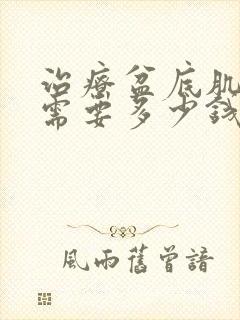 治療盆底肌
需要多少錢
風雨舊曾諳